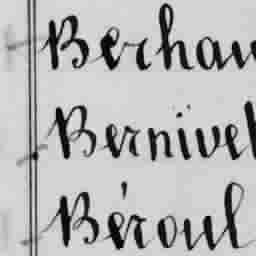 Berhau
Bernivel
Béroul